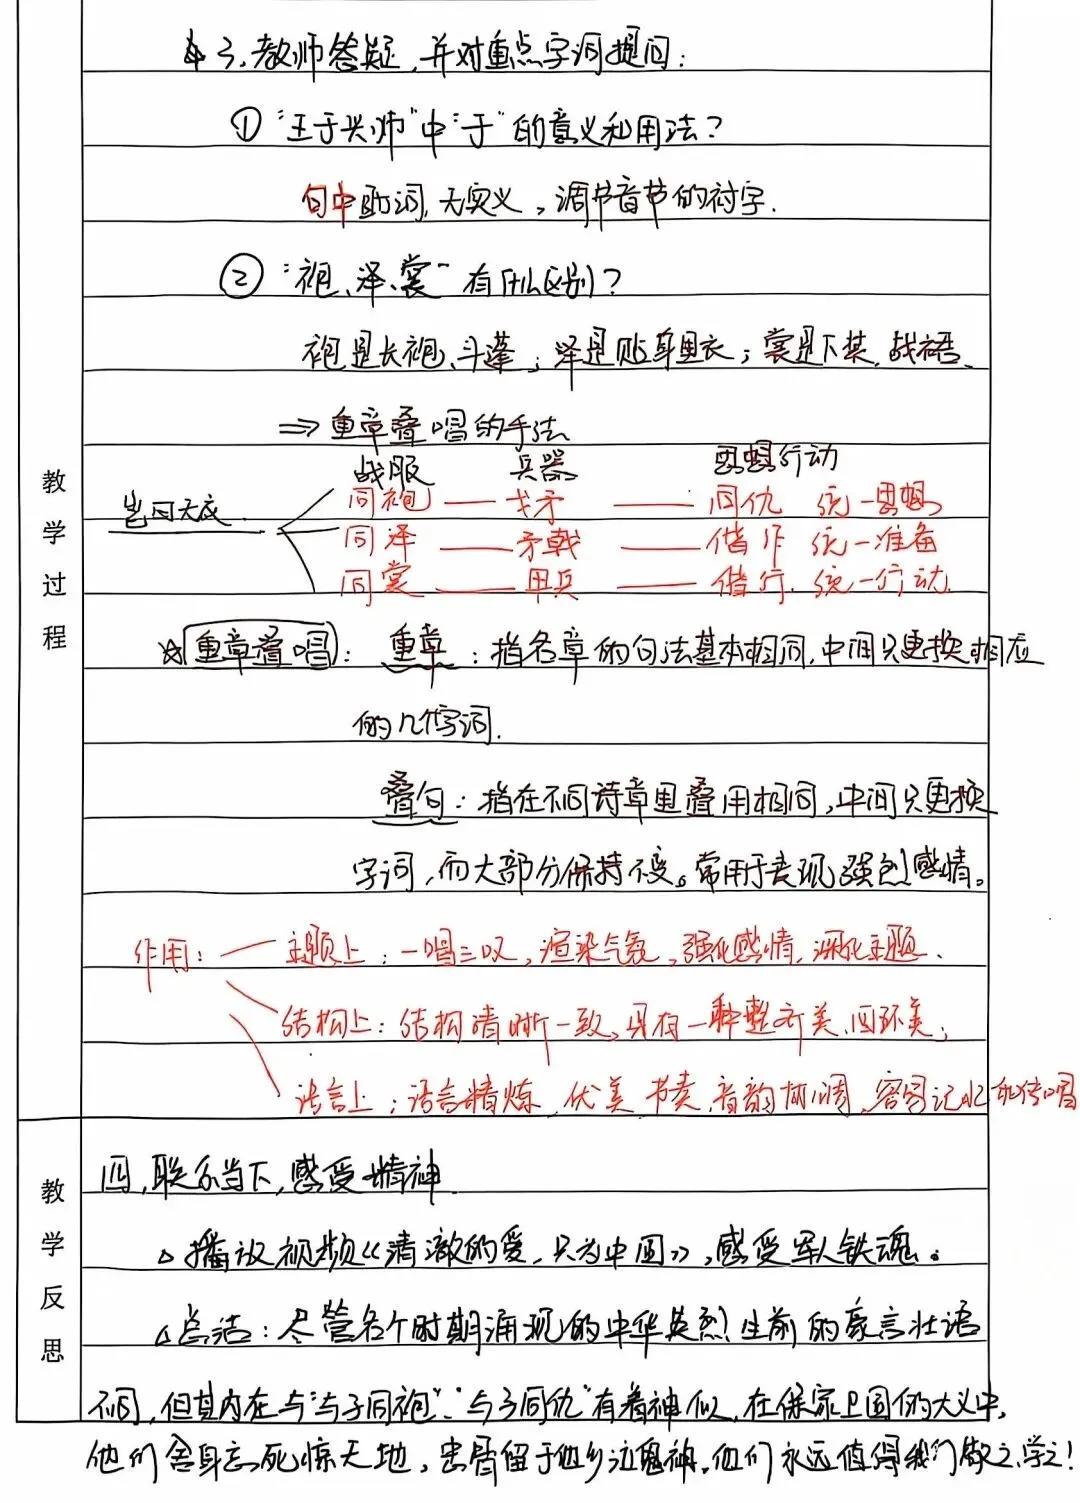 3、教师答疑,并对重点字词提问:
①“王于兴师”中“于”的意义和用法?
句中助词,无实义,调节音节的衬字.
②“袍、泽、裳”有什么区别?
袍是长袍、斗蓬;泽是贴身里衣;裳是下装,战裙.
⇒重章叠唱的手法
战服 兵器 思想行动
岂曰无衣
同袍——戈矛——同仇 统一思想
同泽——矛戟——偕作 统一准备
同裳——甲兵——偕行. 统一行动.
☆重章叠唱:重章:指各章的句法基本相同,中间只更换相应
的几个字词.
叠句:指在不同诗章里叠用相同,中间只更换
字词,而大部分保持不变。常用于表现强烈感情。
作用:
主题上:一唱三叹,渲染气氛,强化感情,深化主题.
结构上:结构清晰一致,具有一种整齐美、回环美;
语言上:语言精炼,优美 节奏,音韵协调,容易记忆和传唱
教学过程
四,联系当下,感受精神
△播放视频《清澈的爱,只为中国》,感受军人铁魂。
△总结:尽管各个时期涌现的中华英烈生前的豪言壮语
不同,但其内在与“与子同袍”、“与子同仇”有着神似,在保家卫国的大义中,
他们舍身忘死惊天地,忠骨留于他乡泣鬼神,他们永远值得我们敬之、学之!
教学反思